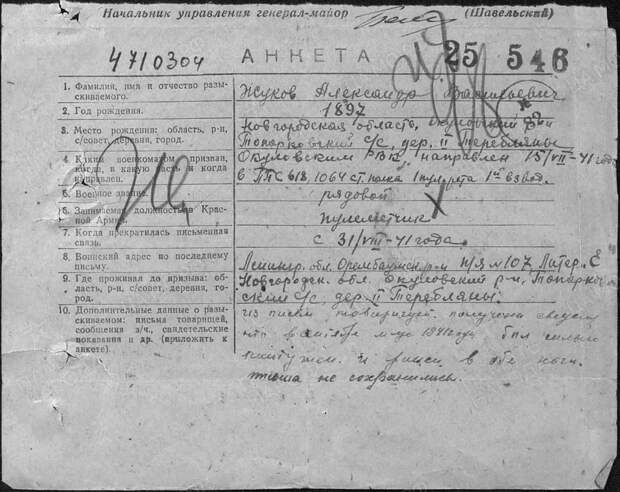 Начальник управления генерал-майор (Шавельский)
4710304 АНКЕТА 25 546
1. Фамилия, имя и отчество разы-
скиваемого.
Жуков Александр Васильевич
2. Год рождения.
1897
3. Место рождения: область, р-н,
с/совет, деревня, город.
Новгородская область, Окуловский р-н
Топорковский с/с, дер. II Теребляны
4. Каким военкоматом призван,
когда, в какую часть и когда
направлен.
Окуловским РВК, направлен 15/VII-41 года
в ППС 618, 1064 ст. полк 1 пулрота 1й взвод.
5. Военное звание.
рядовой
6. Занимаемая должность в Крас-
ной Армии.
пулеметчик
7. Когда прекратилась письменная
связь.
с 31/VIII-41 года.
8. Воинский адрес по последнему
письму.
Ленингр. обл. Оренбаумск. р-н п/я №107 Литер. Е
9. Где проживал до призыва: об-
ласть, р-н, с/совет, деревня, го-
род.
Новгородск. обл. Окуловский р-н, Топорков-
ский с/с, дер. II Теребляны.
10. Дополнительные данные о ра-
зыскиваемом: письма товарищей,
сообщения з/ч., свидетельские
показания и др. (приложить к
анкете).
из письма товарищей получены сведен
что в 1941 году был сильно
и в обе ноги.
письма не сохранились.